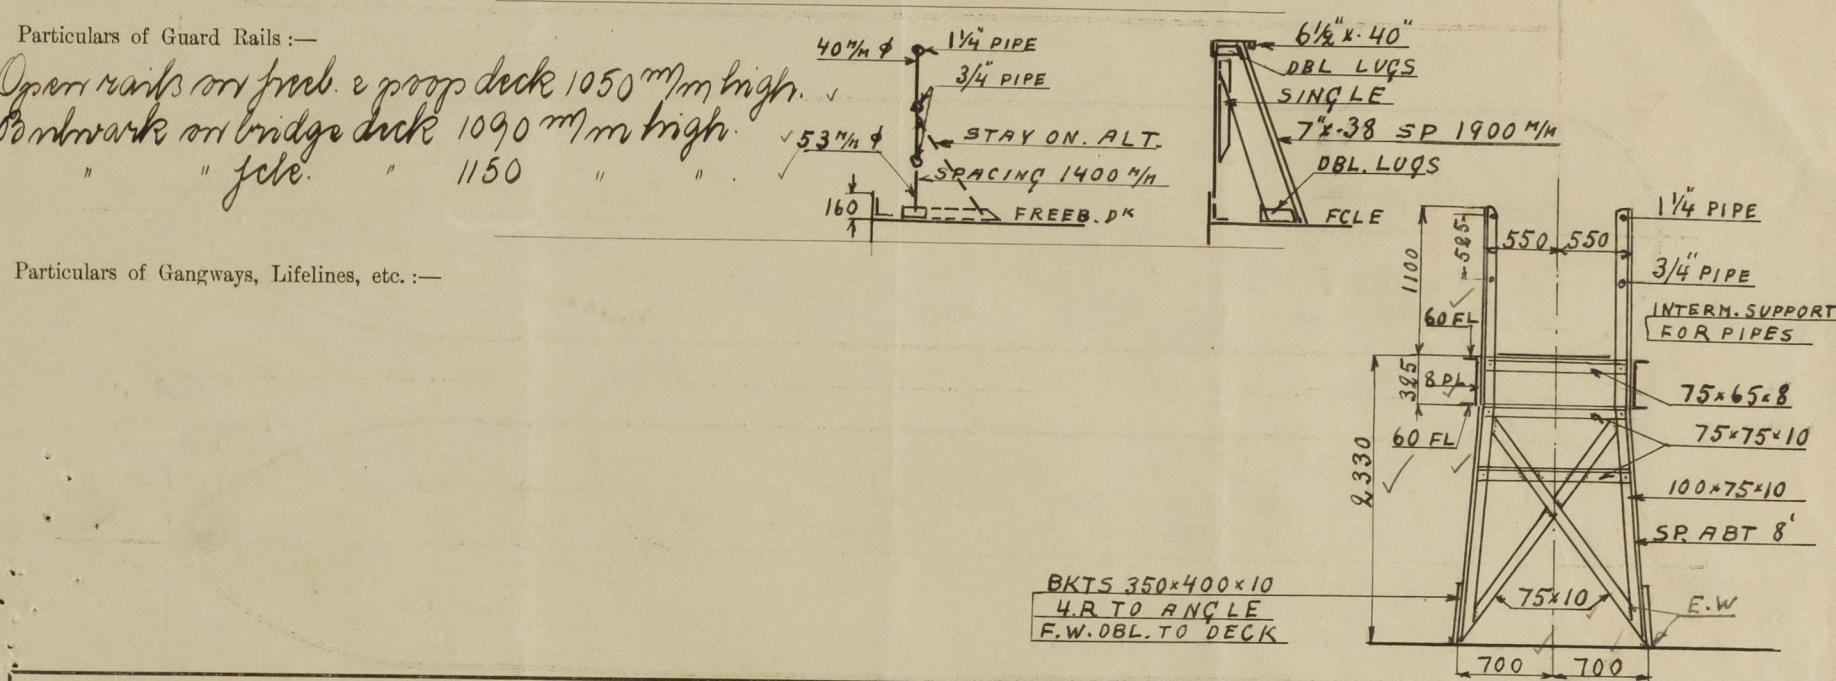 Particulars of Guard Rails :—
Open rails on freeb. & poop deck 1050 m/m high.
Bulwark on bridge deck 1090 m/m high.
" " fcle. " 1150 " " .
40 m/m ϕ
1¼" PIPE
3/4" PIPE
53 m/m ϕ
STAY ON. ALT.
SPACING 1400 m/m
160
FREEB. DK
6½" x .40"
DBL LUGS
SINGLE
7" x .38 SP 1900 m/m
DBL. LUGS
FCLE
Particulars of Gangways, Lifelines, etc. :—
1¼" PIPE
550 550
1100
525
3/4" PIPE
INTERM. SUPPORT
FOR PIPES
60 FL
325
8 PL
75×65×8
60 FL
75×75×10
2330
100×75×10
SP. ABT 8'
BKTS 350×400×10
4.R TO ANGLE
F.W. DBL. TO DECK
75×10
E.W
700 700